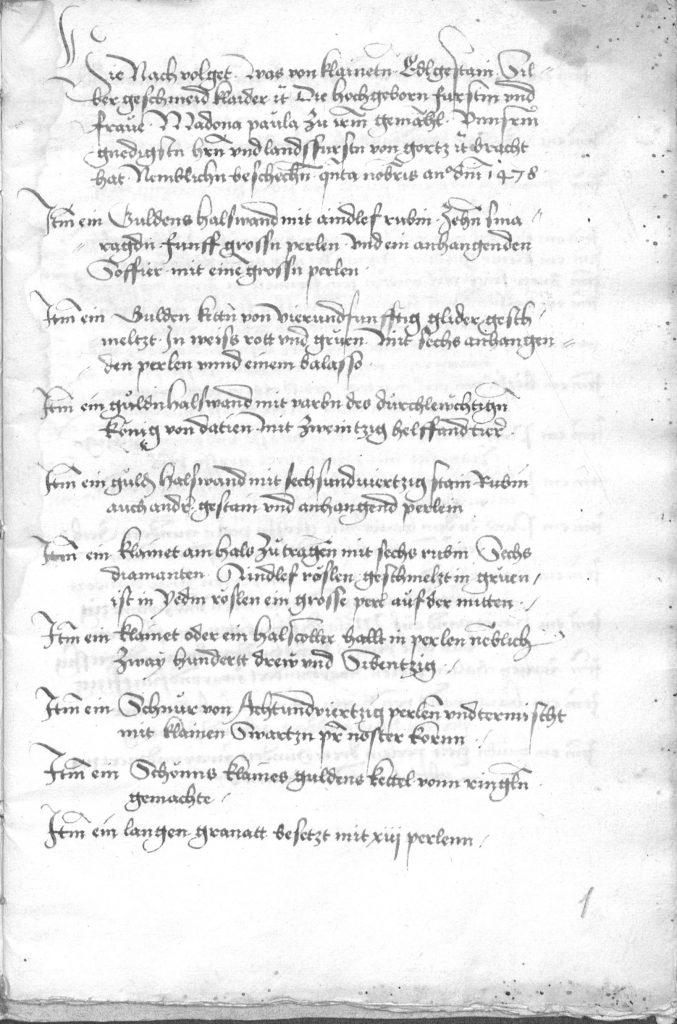 Hie Nach volget Was von klainetn Edlgestain Sil-
ber geschmeid klaider etc Die hochgeborn furstin vnd
frawe Madona paula zu irm gemahl Vnnserm
gnedigstn hrn vnd landsfurstn von gortz etc bracht
hat Nemblichn beschechn qnta nobris ano dm 1478
Itm ein Guldens halswand mit aindlef rubin Zehn sma
ragdn funff grossn perlen Vnd ein anhangenden
Soffier mit eine grossn perlen
Itm ein Gulden kettn von vierundfunfftzig glider gesch
meltzt In weiss rott vnd gruen Mit sechs anhangen
den perlen vnnd einem balasso
Itm ein guldn halswand mit varbn des durchleuchtign
konig von datien mit zweintzig helffandtier
Itm ein guldn halswand mit sechsundviertzig stain Rubin
auch andr gestain vnd anhangend perlein
Itm ein klainet am hals zu tragen mit sechs rubin Sechs
diamanten Aindlef roslen geschmelzt in gruen
ist in yedm roslen ein grosse perl auf der mitten
Itm ein klainet oder ein halscoller hallt in perlen neblich
Zway hundertt drew vnd Sibentzig
Itm ein Schnur von Achtundviertzig perlen vndtermischt
mit klainen Swartzn pr noster kornn
Itm ein Schonns klaines guldens kettel vonn ringln
gemachte
Itm ein langen granatt besetzt mit xiii perlenn
1